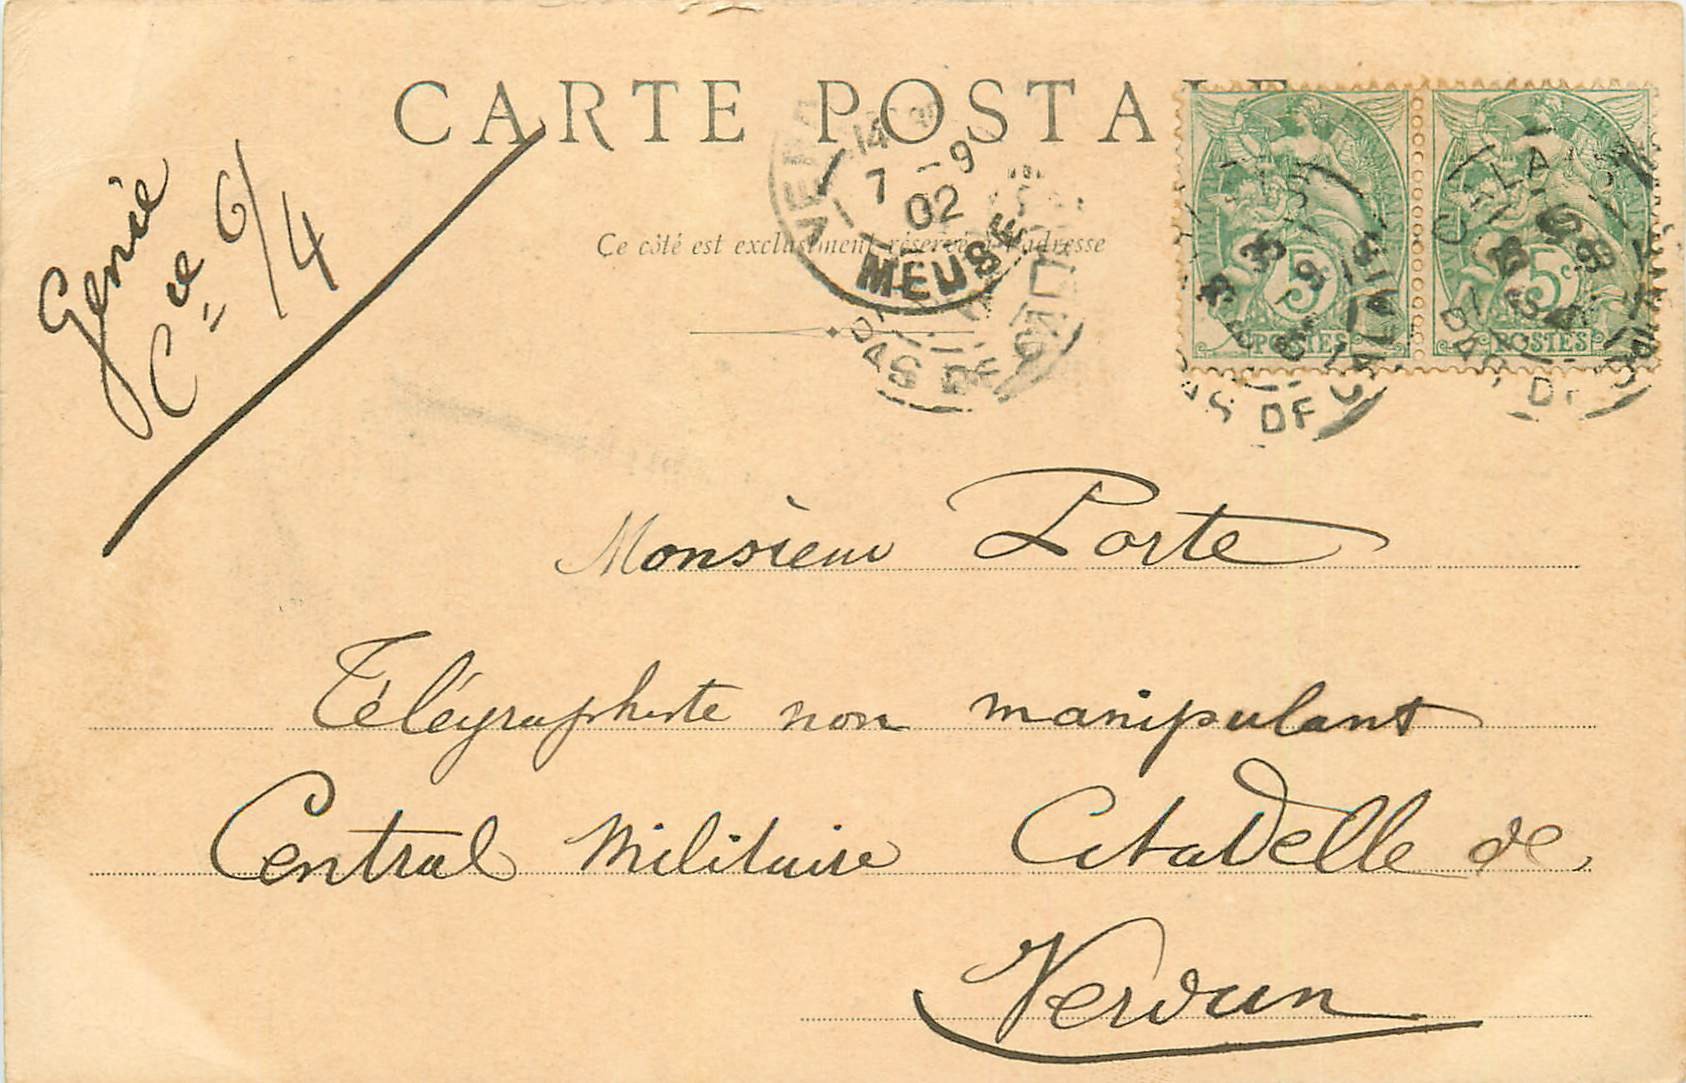 CARTE POSTALE
Ce côté est exclusivement réservé à l'adresse
Génie
Cie 6/4
VERDUN
7 -9
02
MEUSE
PAS DE
CALAIS
PAS DE CALAIS
CALAIS
PAS DE
5c
POSTES
5c
POSTES
Monsieur Porte
Télégraphiste non manipulant
Central Militaire Citadelle de
Verdun